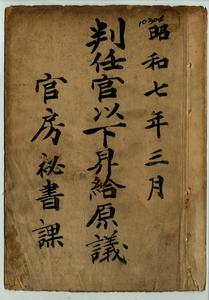 昭和七年三月
判任官以下昇給原議
官房祕書課